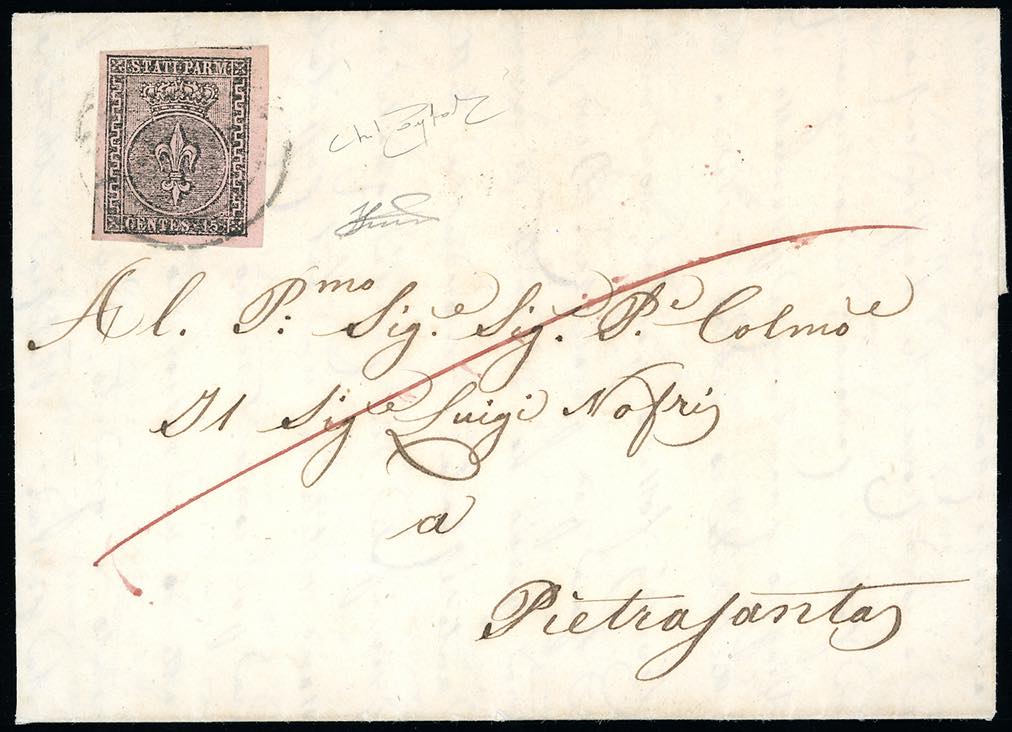 STATI PARM
CENTES. 15
Al. P:mo Sig.e Sig. P.e Colmõe
Il Sige Luigi Nofri
a
Pietrasanta